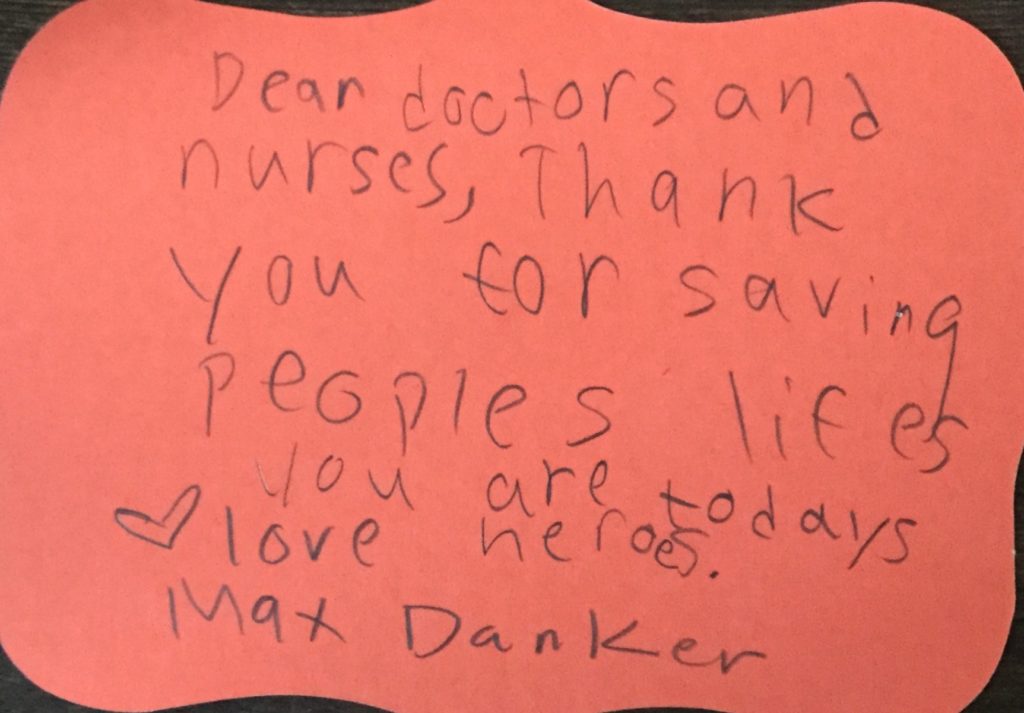 Dear doctors and
nurses, Thank
you for saving
peoples lifes
you are todays
♡ love heroes.
Max Danker